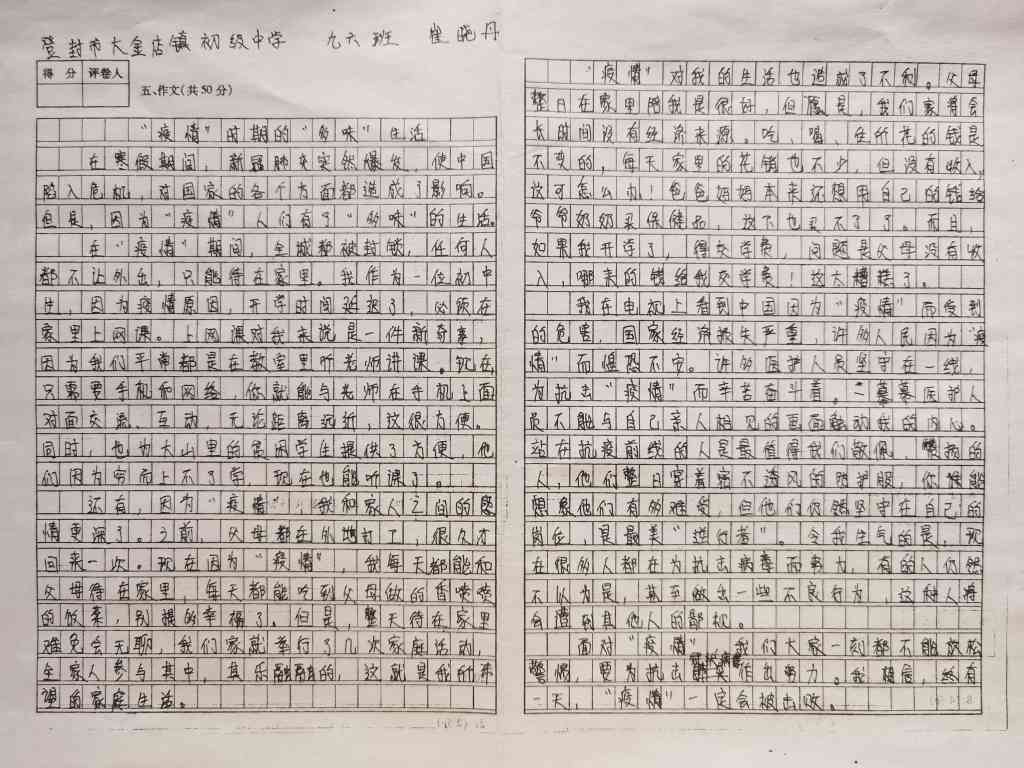 登封市大金店镇初级中学 九六班 崔晓丹
得 分 评卷人
五、作文(共50分)
"疫情"时期的"多味"生活
在寒假期间，新冠肺炎突然爆发，使中国
陷入危机，对国家的各个方面都造成了影响。
但是，因为"疫情"人们有了"多味"的生活。
在"疫情"期间，全城都被封锁，任何人
都不让外出，只能待在家里。我作为一位初中
生，因为疫情原因，开学时间延迟了，必须在
家里上网课。上网课对我来说是一件新奇事，
因为我们平常都是在教室里听老师讲课。现在，
只需要手机和网络，你就能与老师在手机上面
对面交流、互动，无论距离远近，这很方便。
同时，也为大山里的贫困学生提供了方便，他
们因为穷而上不了学，现在也能听课了。
还有，因为"疫情"，我和家人之间的感
情更深了。之前，父母都在外地打工，很久才
回来一次。现在因为"疫情"，我每天都能和
父母待在家里，每天都能吃到父母做的香喷喷
的饭菜，别提的幸福了。但是，整天待在家里
难免会无聊，我们家就举行了几次家庭活动，
全家人参与其中，其乐融融的，这就是我所希
望的家庭生活。
"疫情"对我的生活也造成了不利。父母
整日在家里陪我是很好，但是，我们家将会
长时间没有经济来源。吃、喝、住所花的钱是
不变的，每天家里的花销也不少，但没有收入，
这可怎么办！爸爸妈妈本来还想用自己的钱给
爷爷奶奶买保健品，这下也买不了了。而且，
如果我开学了，得交学费，问题是父母没有收
入，哪来的钱给我交学费！这太糟糕了。
我在电视上看到中国因为"疫情"而受到
的危害，国家经济损失严重，许多人民因为"疫
情"而惶恐不安。许多医护人员坚守在一线，
为抗击"疫情"而辛苦奋斗着。一幕幕医护人
员不能与自己亲人相见的画面触动我的内心。
站在抗疫前线的人是最值得我们敬佩、的
人，他们整日穿着密不透风的防护服，你能
想象他们有多难受，但他们仍然坚守在自己的
岗位，是最美"逆行者"。令我生气的是，现
在很多人都在为抗击病毒而努力，有的人仍然
不以为是，甚至做出一些不良行为，这种人将
会遭到其他人的鄙视。
面对"疫情"，我们大家一刻都不能放松
警惕，要为抗击作出努力。我相信，终有
一天，"疫情"一定会被击败。